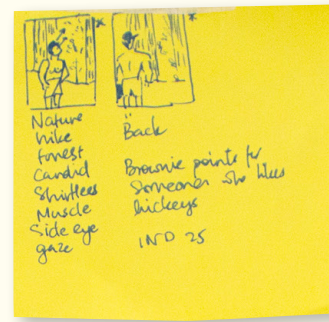 Nature
hike
forest
Candid
Shirtless
Muscle
Side eye
gaze
" Back
Brownie points for
Someone who likes
hickeys
IND 25